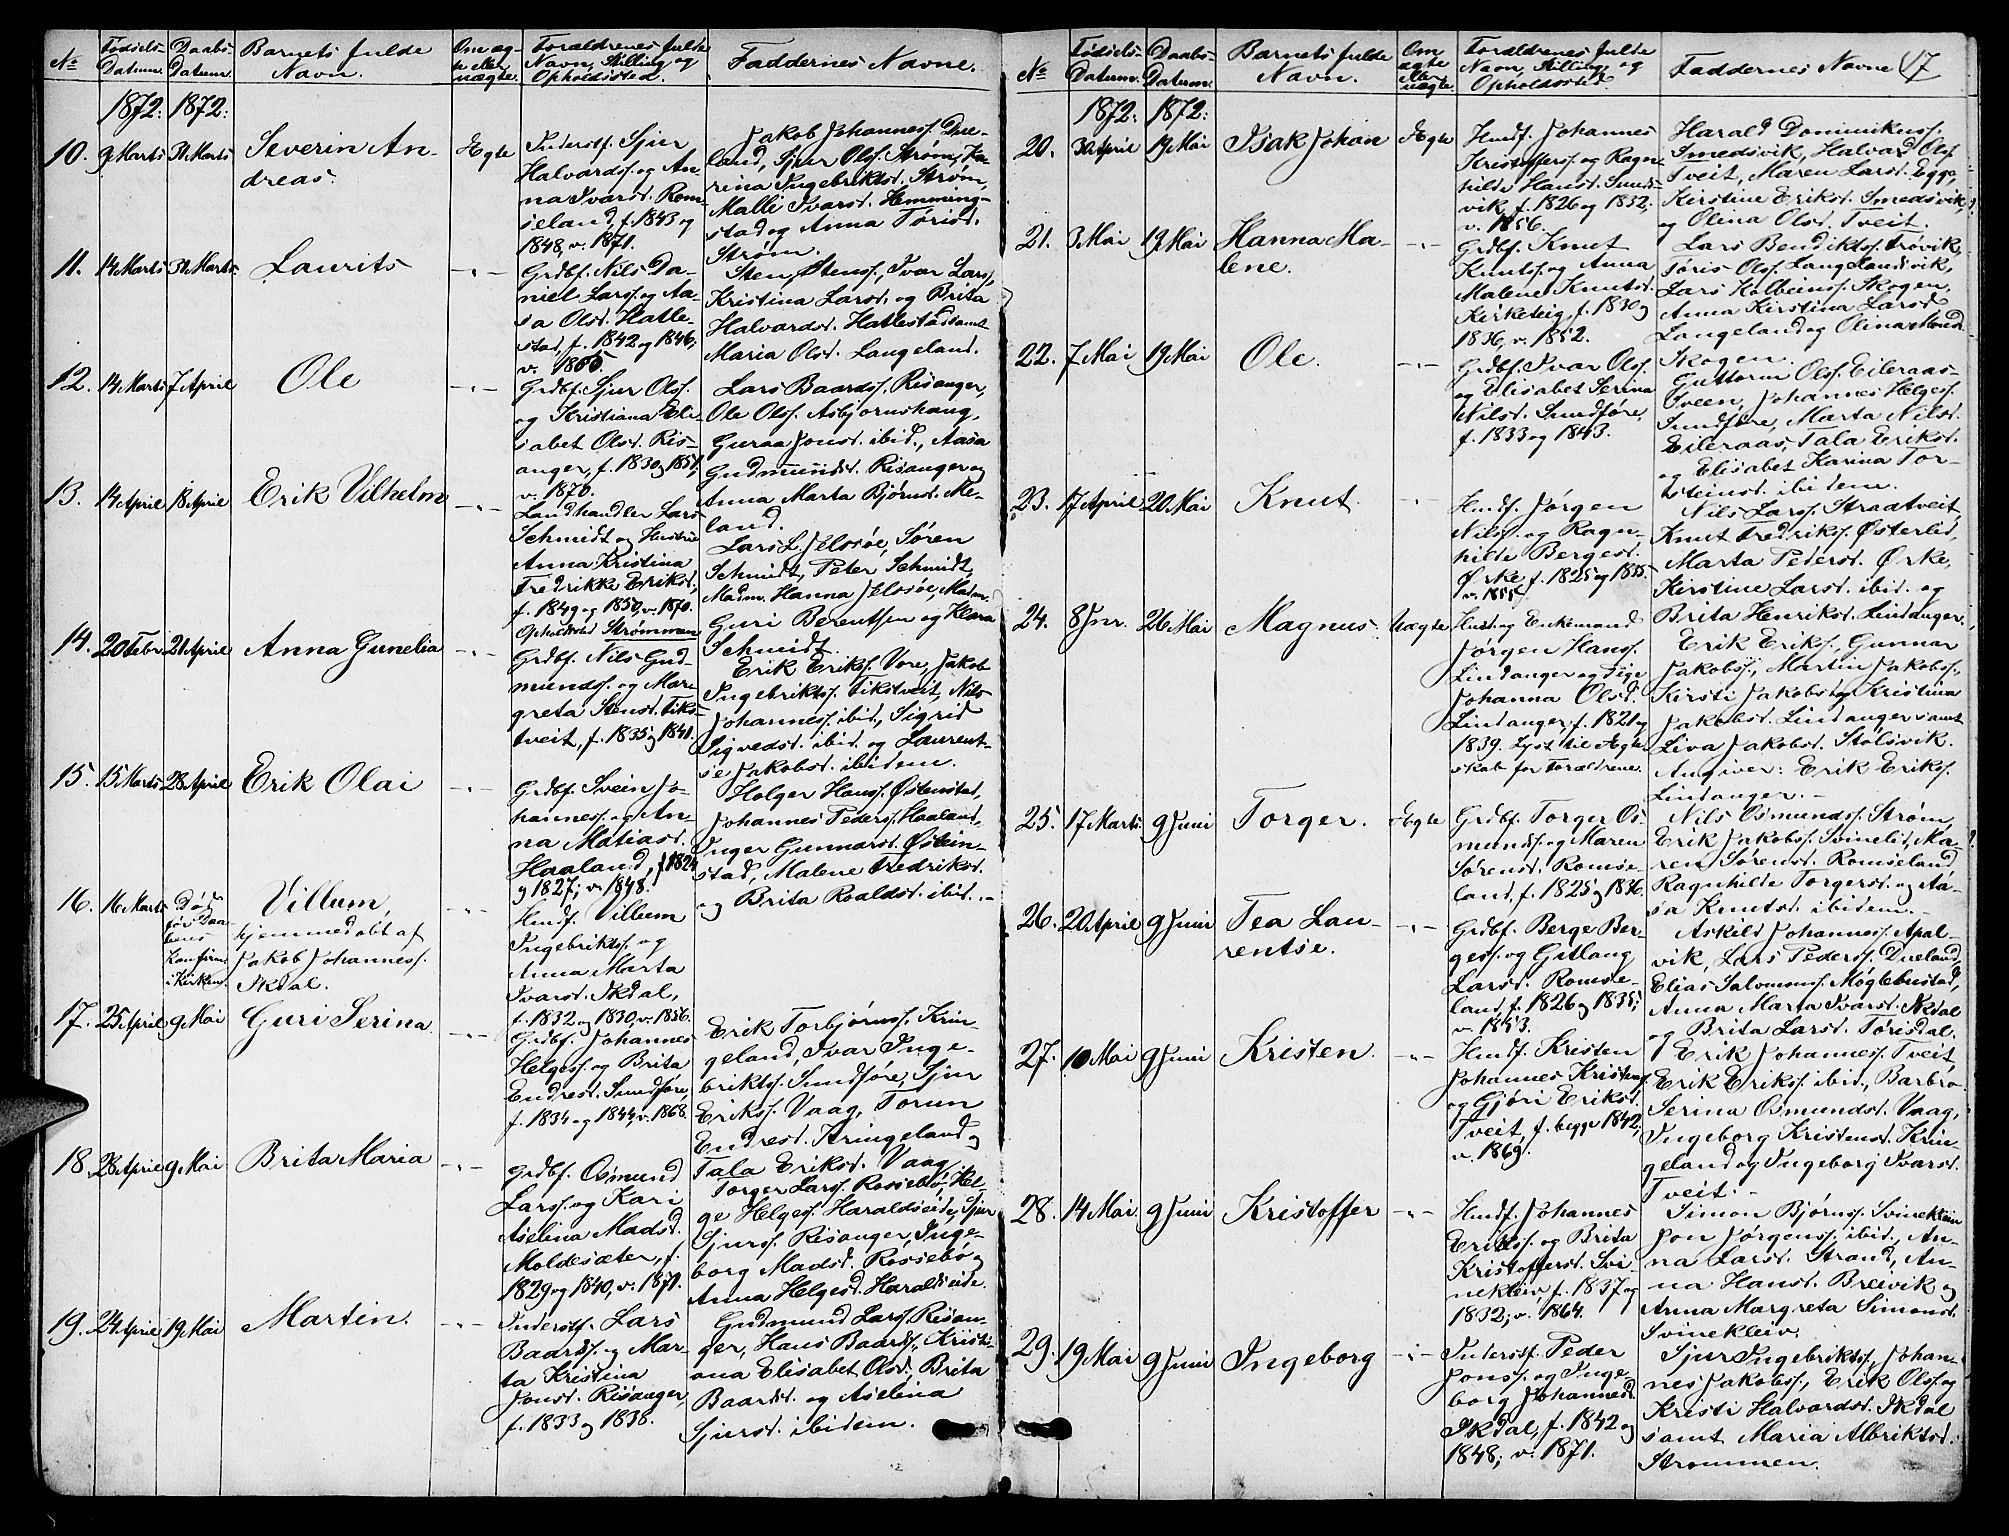 No
Fødsels-
Datum.
Daabs-
Datum.
Barnets fulde
Navn.
Om æg-
te eller
uægte.
Forældrenes fulde
Navn, Stilling og
Opholdssted.
Faddernes Navne.
1872: 1872:
10. 9 Marts 31 Marts
Severin An-
dreas.
Ægte
Inderstf. Sjur
Halvards. og An-
na Ivarsd. Rom-
seland, f. 1843 og
1848, v. 1871.
Jakob Johanness. Due-
land, Sjur Ols. Strøm, Ka-
rina Ingebriktsd. Strøm,
Malli Ivarsd. Hemming-
stad og Anna Tørisd.
Strøm.
11. 14 Marts 31 Marts
Laurits
-"-
Grdbf. Nils Da-
niel Larss. og Aa-
sa Olsd. Hatle-
stad, f. 1842 og 1846,
v. 1865.
Sten Stenss., Ivar Larss.,
Kristina Larsd. og Brita
Halvardsd. Hatlestad samt
Maria Olsd. Langeland.
12. 14 Marts 7 April
Ole
-"-
Grdbf. Sjur Ols.
og Kristiana Eli-
sabet Olsd. Ris-
anger, f. 1830 og 1851,
v. 1870.
Lars Baards. Risanger,
Ole Ols. Asbjørnshaug,
Guraa Jonsd. ibid., Aasa
Gudmundsd. Risanger og
Anna Marta Bjørnsd. Me-
land.
13. 14 April 18 April
Erik Vilhelm
-"-
Landhandler Lars
Schmidt og Hustru
Anna Kristina
Fredrikke Eriksd.,
f. 1849 og 1850, v. 1870.
Opholdssted Strømmen
Lars L. Jelssøe, Søren
Schmidt, Peter Schmidt,
Madm. Hanna Jelssøe, Madm.
Guri Berentsen og Klara
Schmidt.
14. 20 Febr 21 April
Anna Gunelia
-"-
Grdbf. Nils Gud-
munds. og Mar-
greta Stensd. Tiks-
tveit, f. 1835 og 1841.
Erik Eriks. Vore, Jakob
Ingebrikts. Tikstveit, Nils
Johanness. ibid., Sigrid
Sigvedsd. ibid. og Laurent-
se Jakobsd. ibidem.
15. 15 Marts 28 April
Erik Olai
-"-
Grdbf. Svein Jo-
hanness. og An-
na Matiasd.
Haaland, f. 1824
og 1827; v. 1848.
Holger Hanss. Østenstad,
Johannes Peders. Haaland,
Inger Gunnarsd. Østein-
stad, Malene Fredriksd.
og Brita Roaldsd. ibid.
16. 16 Marts
Død
før Daa-
bens
Konfirm.
i Kirken.
Villum,
hjemmedøbt af
Jakob Johanness.
Ikdal.
-"-
Hmdf. Villum
Ingebrikts. og
Anna Marta
Ivarsd. Ikdal,
f. 1832 og 1830, v. 1856.
17. 25 April 9 Mai
Guri Serina
-"-
Grdbf. Johannes
Helges. og Brita
Endresd. Sundføre,
f. 1834 og 1844, v. 1868.
Erik Torbjørns. Krin-
geland, Ivar Inge-
brikts. Sundføre, Sjur
Eriks. Vaag, Torun
Endresd. Kringeland og
Tala Eriksd. Vaag.
18. 28 April 9 Mai
Brita Maria
-"-
Grdbf. Osmund
Larss. og Kari
Aselina Madsd.
Moldesæter, f.
1829 og 1840, v. 1871.
Torger Larss. Rossebø, Hel-
ge Helges. Haraldseide, Sjur
Sjurs. Risanger, Inge-
borg Madsd. Rossebø og
Anna Helgesd. Haraldseide.
19. 24 April 19 Mai
Martin.
-"-
Inderstf. Lars
Baards. og Mar-
ta Kristina
Jonsd. Risanger,
f. 1833 og 1838.
Gudmund Larss. Risan-
ger, Hans Baards., Kristi-
ana Elisabet Olsd., Brita
Baardsd. og Aselina
Sjursd. ibidem.
No
Fødsels-
Datum.
Daabs-
Datum.
Barnets fulde
Navn.
Om
ægte
eller
uægte.
Forældrenes fulde
Navn, Stilling og
Opholdssted.
Faddernes Navne
17
1872: 1872:
20. 30 April 19 Mai
Isak Johan
Ægte
Hmdf. Johannes
Kristoffers. og Ragn-
hilde Hansd. Smeds-
vik, f. 1826 og 1832,
v. 1856.
Harald Dominikuss.
Smedsvik, Halvard Ols.
Tveit, Maren Larsd. Egge,
Kirstine Eriksd. Smedsvik,
og Olina Olsd. Tveit.
21. 3 Mai 19 Mai
Hanna Ma-
lene.
-"-
Grdbf. Knut
Knuts. og Anna
Malene Knutsd.
Kirketeig, f. 1830 og
1836, v. 1852.
Lars Bendikts. Frøvik,
Tøris Ols. Langelandsvik,
Lars Kolbeins. Skogen,
Anna Kirstina Larsd.
Langeland og Olina Mondsd.
Skogen.
22. 7 Mai 19 Mai
Ole.
-"-
Grdbf. Ivar Ols.
og Elisabet Serina
Nilsd. Sundføre,
f. 1833 og 1843.
Guttorm Ols. Eileraas-
Sveen, Johannes Helges.
Sundføre, Marta Nilsd.
Eileraas, Tala Eriksd.
og Elisabet Karina Tor-
steinsd. ibidem.
23. 17 April 20 Mai
Knut
-"-
Hmdf. Jørgen
Nilss. og Ragn-
hilde Bergesd.
Ørke, f. 1825 og 1835.
v. 1855
Nils Larss. Straatveit,
Knut Fredriks. Østerlid,
Marta Pedersd. Ørke,
Kirstine Larsd. ibid. og
Brita Henriksd. Lindanger.
24. 8 Jnr. 26 Mai
Magnus
Uægte
Hmd. og Enkemand
Jørgen Hanss.
Lindanger og Pige
Johanna Olsd.
Lindanger, f. 1821 og
1839. Lyst til Ægte-
skab for Forældrene.
Erik Eriks., Gunnar
Jakobs., Martin Jakobs.,
Kirsti Jakobsd. og Kristina
Jakobsd. Lindanger samt
Liva Jakobsd. Stølsvik.
Angiver: Erik Eriks.
Lindanger.
25. 17 Marts 9 Juni
Torger.
Ægte
Grdbf. Torger Os-
munds. og Maren
Sørensd. Romse-
land, f. 1825 og 1836.
Nils Osmunds. Strøm,
Erik Jakobs. Svinelid, Ma-
ren Sørensd. Romseland,
Ragnhilde Torgersd. og Aa-
sa Knutsd. ibidem.
26. 20 April 9 Juni
Tea Lau-
rentse.
-"-
Grdbf. Berge Ber-
ges. og Gitlaug
Larsd. Romse-
land, f. 1826 og 1835;
v. 1853.
Askild Johanness. Apal-
vik, Lars Peders. Dueland,
Elias Salomons. Møglebustad,
Anna Marta Ivarsd. Ikdal
og Brita Larsd. Tørisdal.
27. 10 Mai 9 Juni
Kristen.
-"-
Hmdf. Kristen
Johannes Kristens.
og Gjøri Eriksd.
Tveit, f. begge 1842;
v. 1869.
Erik Johanness. Tveit,
Erik Eriks. ibid., Barbro
Serina Osmundsd. Vaag,
Ingeborg Kristensd. Krin-
geland og Ingeborg Ivarsd.
Tveit.
28. 14 Mai 9 Juni
Kristoffer
-"-
Hmdf. Johannes
Eriks. og Brita
Kristoffersd. Svi-
nekleiv, f. 1837 og
1832; v. 1864.
Simon Bjørns. Svinekleiv
Jon Jørgens. ibid., An-
na Larsd. Strand, An-
na Hansd. Breivik og
Anna Margreta Simonsd.
Svinekleiv.
29. 19 Mai 9 Juni
Ingeborg
-"-
Inderstf. Peder
Jons. og Inge-
borg Johannesd.
Ikdal, f. 1842 og
1848; v. 1871.
Sjur Ingebrikts., Johan-
nes Jakobs., Erik Ols. og
Kristi Halvardsd. Ikdal
samt Maria Albriktsd.
Strømmen.